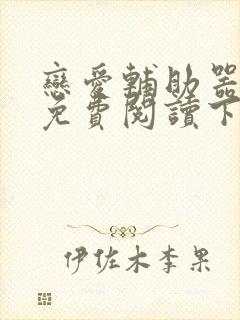 戀愛輔助器
免費閱讀下
伊佐木李果